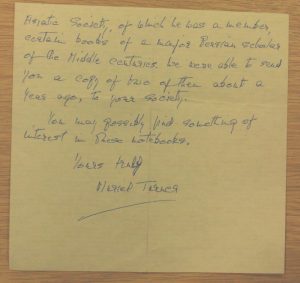 Asiatic Society, of which he was a member,
certain books of a major Persian scholar
of the Middle centuries. We were able to send
you a copy of two of them about a
year ago, to your society.
You may possibly find something of
interest in these notebooks.
Yours truly
Muriel Turner